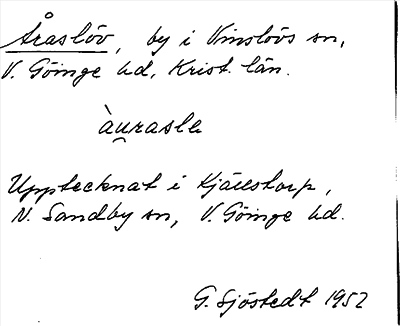 Åraslöv, by i Vinslövs sn,
V. Göinge hd, Krist. län.
àu̯rasle
Upptecknat i Kjällstorp,
N. Sandby sn, V. Göinge hd.
G. Sjöstedt 1952